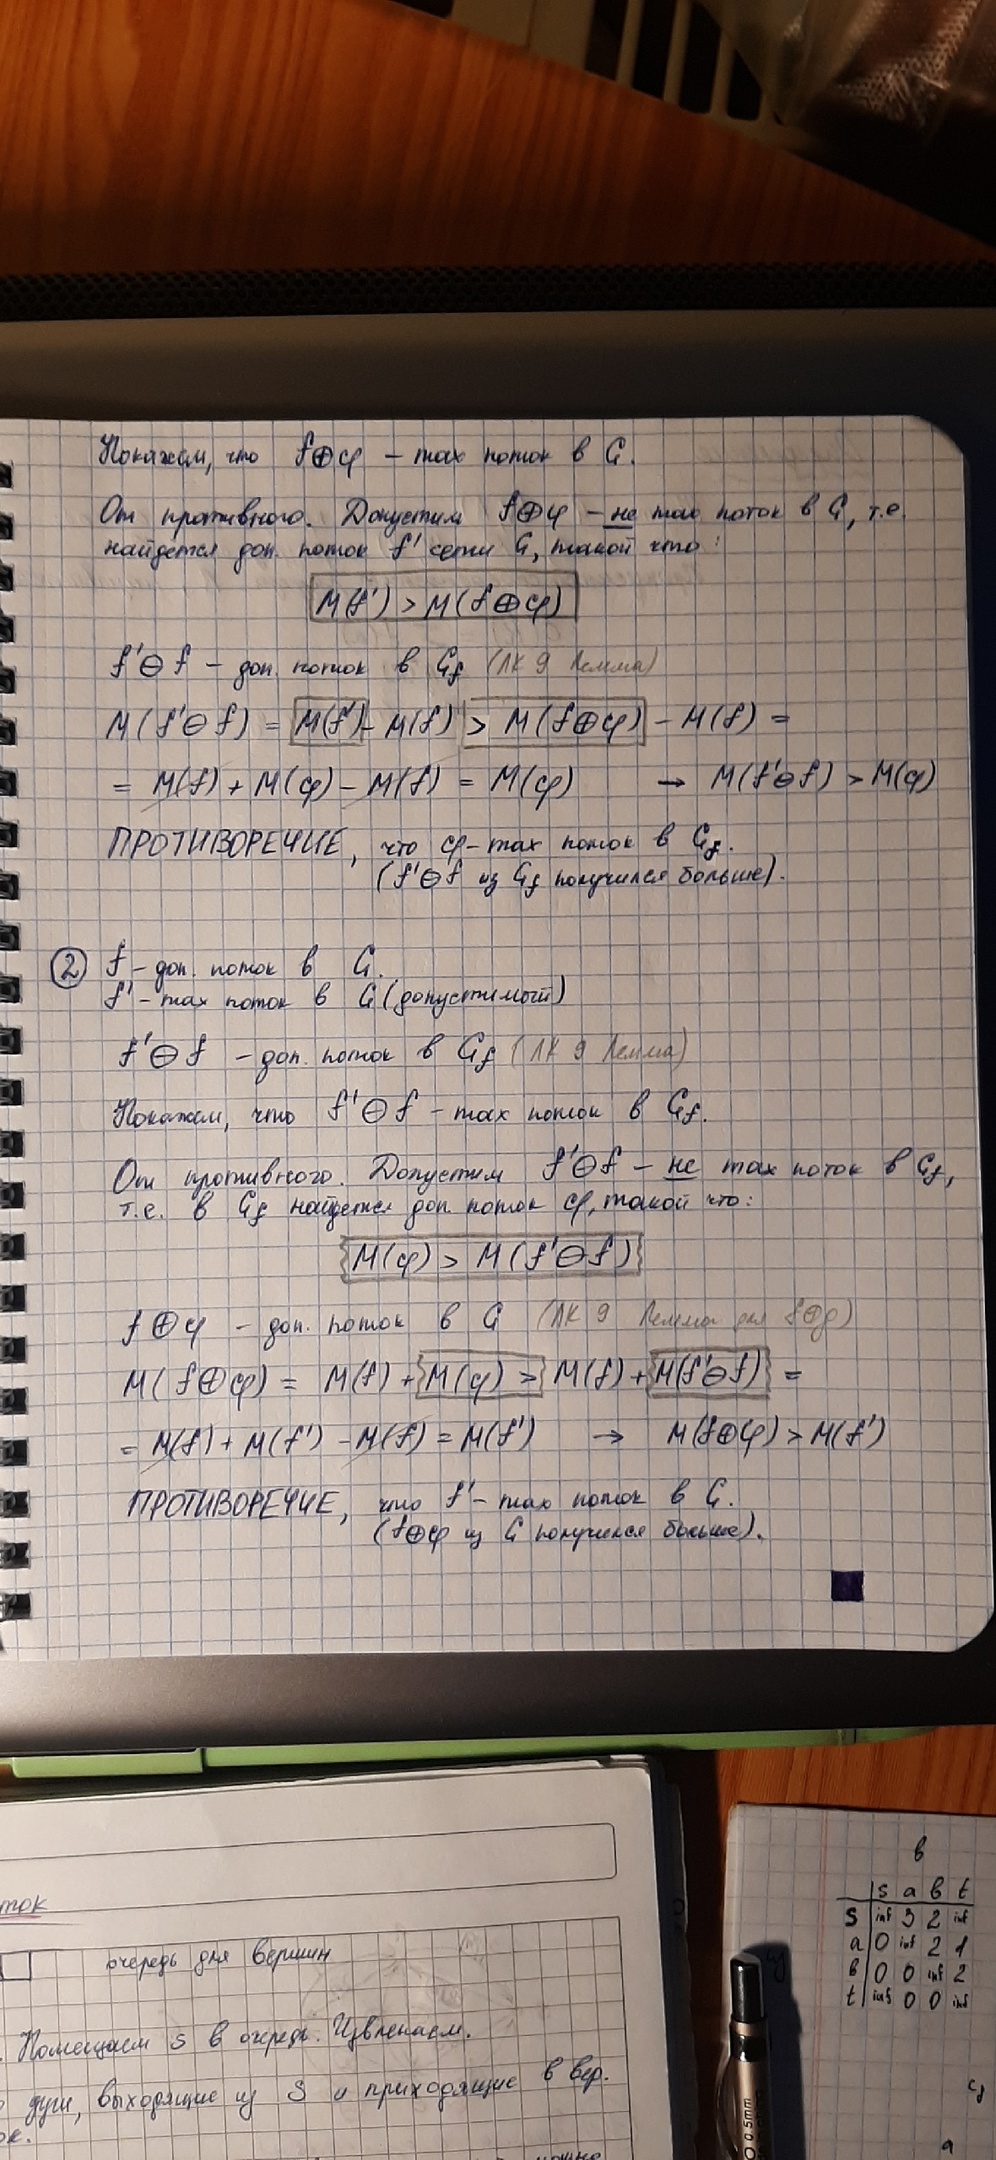 Покажем, что f⊕φ – max поток в G.
От противного. Допустим f⊕φ – не max поток в G, т.е.
найдется доп. поток f' сети G, такой что:
M(f') > M(f⊕φ)
f'⊖f – доп. поток в Gf (ЛК 9 Лемма)
M(f'⊖f) = M(f') - M(f) > M(f⊕φ) - M(f) =
= M(f) + M(φ) - M(f) = M(φ) → M(f'⊖f) > M(φ)
ПРОТИВОРЕЧИЕ, что φ – max поток в Gf.
(f'⊖f из Gf получился больше).
② f – доп. поток в G.
f' – max поток в G (допустимый)
f'⊖f – доп. поток в Gf (ЛК 9 Лемма)
Покажем, что f'⊖f – max поток в Gf.
От противного. Допустим f'⊖f – не max поток в Gf,
т.е. в Gf найдется доп. поток φ, такой что:
M(φ) > M(f'⊖f)
f⊕φ – доп. поток в G (ЛК 9 Лемма для f⊕g)
M(f⊕φ) = M(f) + M(φ) > M(f) + M(f'⊖f) =
= M(f) + M(f') - M(f) = M(f') → M(f⊕φ) > M(f')
ПРОТИВОРЕЧИЕ, что f' – max поток в G.
(f⊕φ из G получился больше).
ток
очередь для вершин
Помещаем s в очередь. Извлекаем.
дуги, выходящие из s и приходящие в вер.
ок.
в
s a b t
s inf 3 2 inf
a 0 inf 2 1
b 0 0 inf 2
t inf 0 0 inf
cf
a
0.5mm